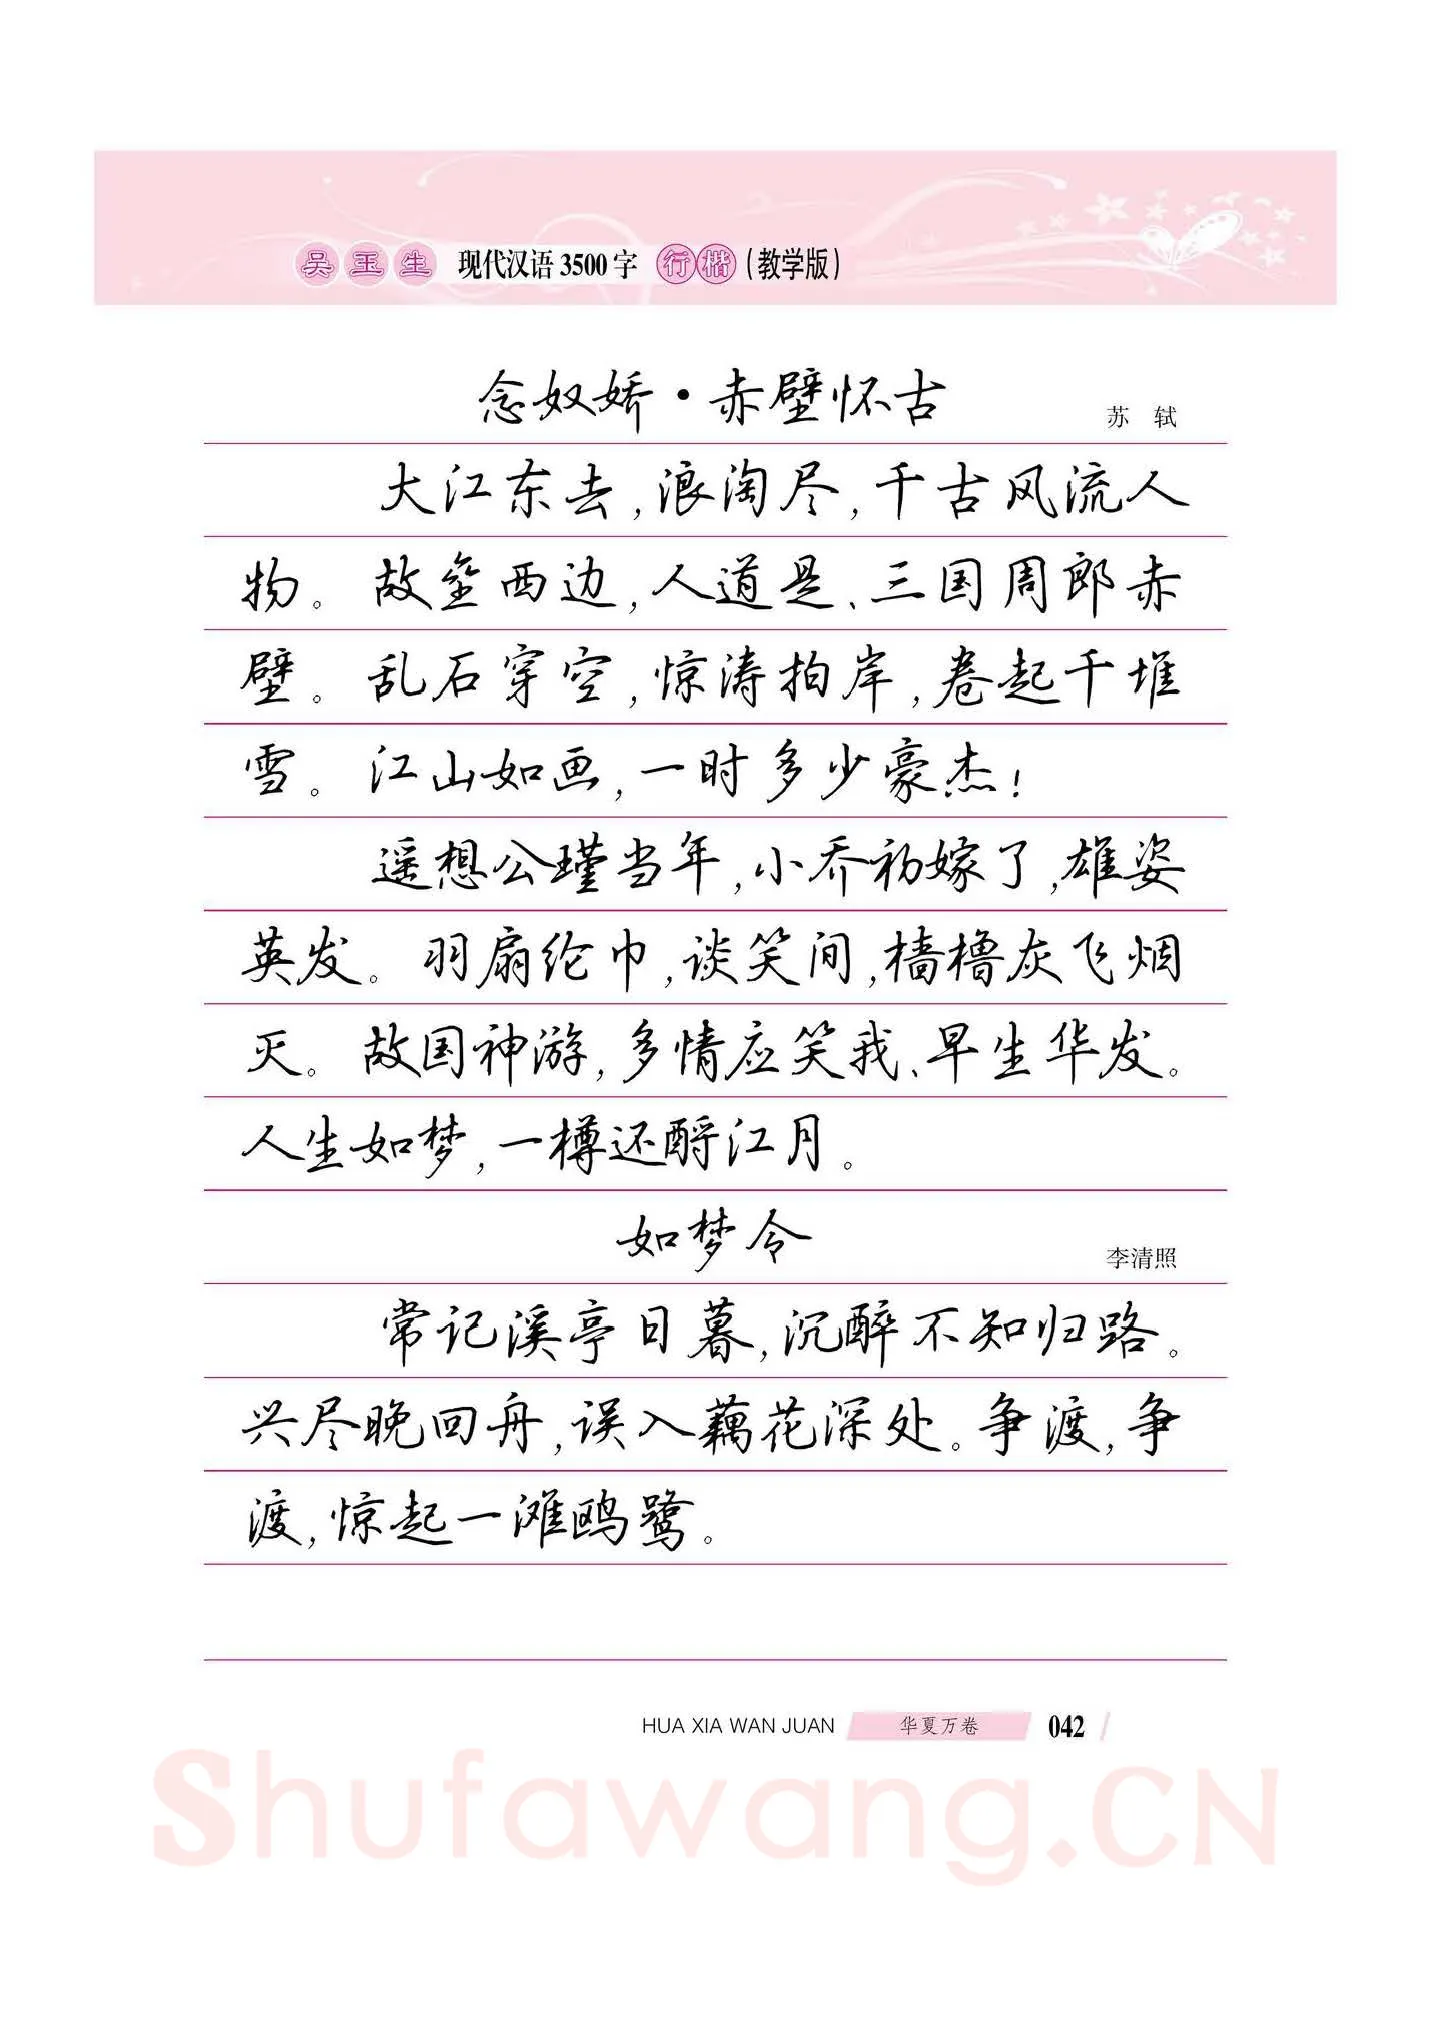 吴玉生 现代汉语3500字 行楷（教学版）
念奴娇·赤壁怀古
苏 轼
大江东去，浪淘尽，千古风流人
物。故垒西边，人道是、三国周郎赤
壁。乱石穿空，惊涛拍岸，卷起千堆
雪。江山如画，一时多少豪杰！
遥想公瑾当年，小乔初嫁了，雄姿
英发。羽扇纶巾，谈笑间，樯橹灰飞烟
灭。故国神游，多情应笑我、早生华发。
人生如梦，一樽还酹江月。
如梦令
李清照
常记溪亭日暮，沉醉不知归路。
兴尽晚回舟，误入藕花深处。争渡，争
渡，惊起一滩鸥鹭。
HUA XIA WAN JUAN 华夏万卷 042
Shufawang.CN